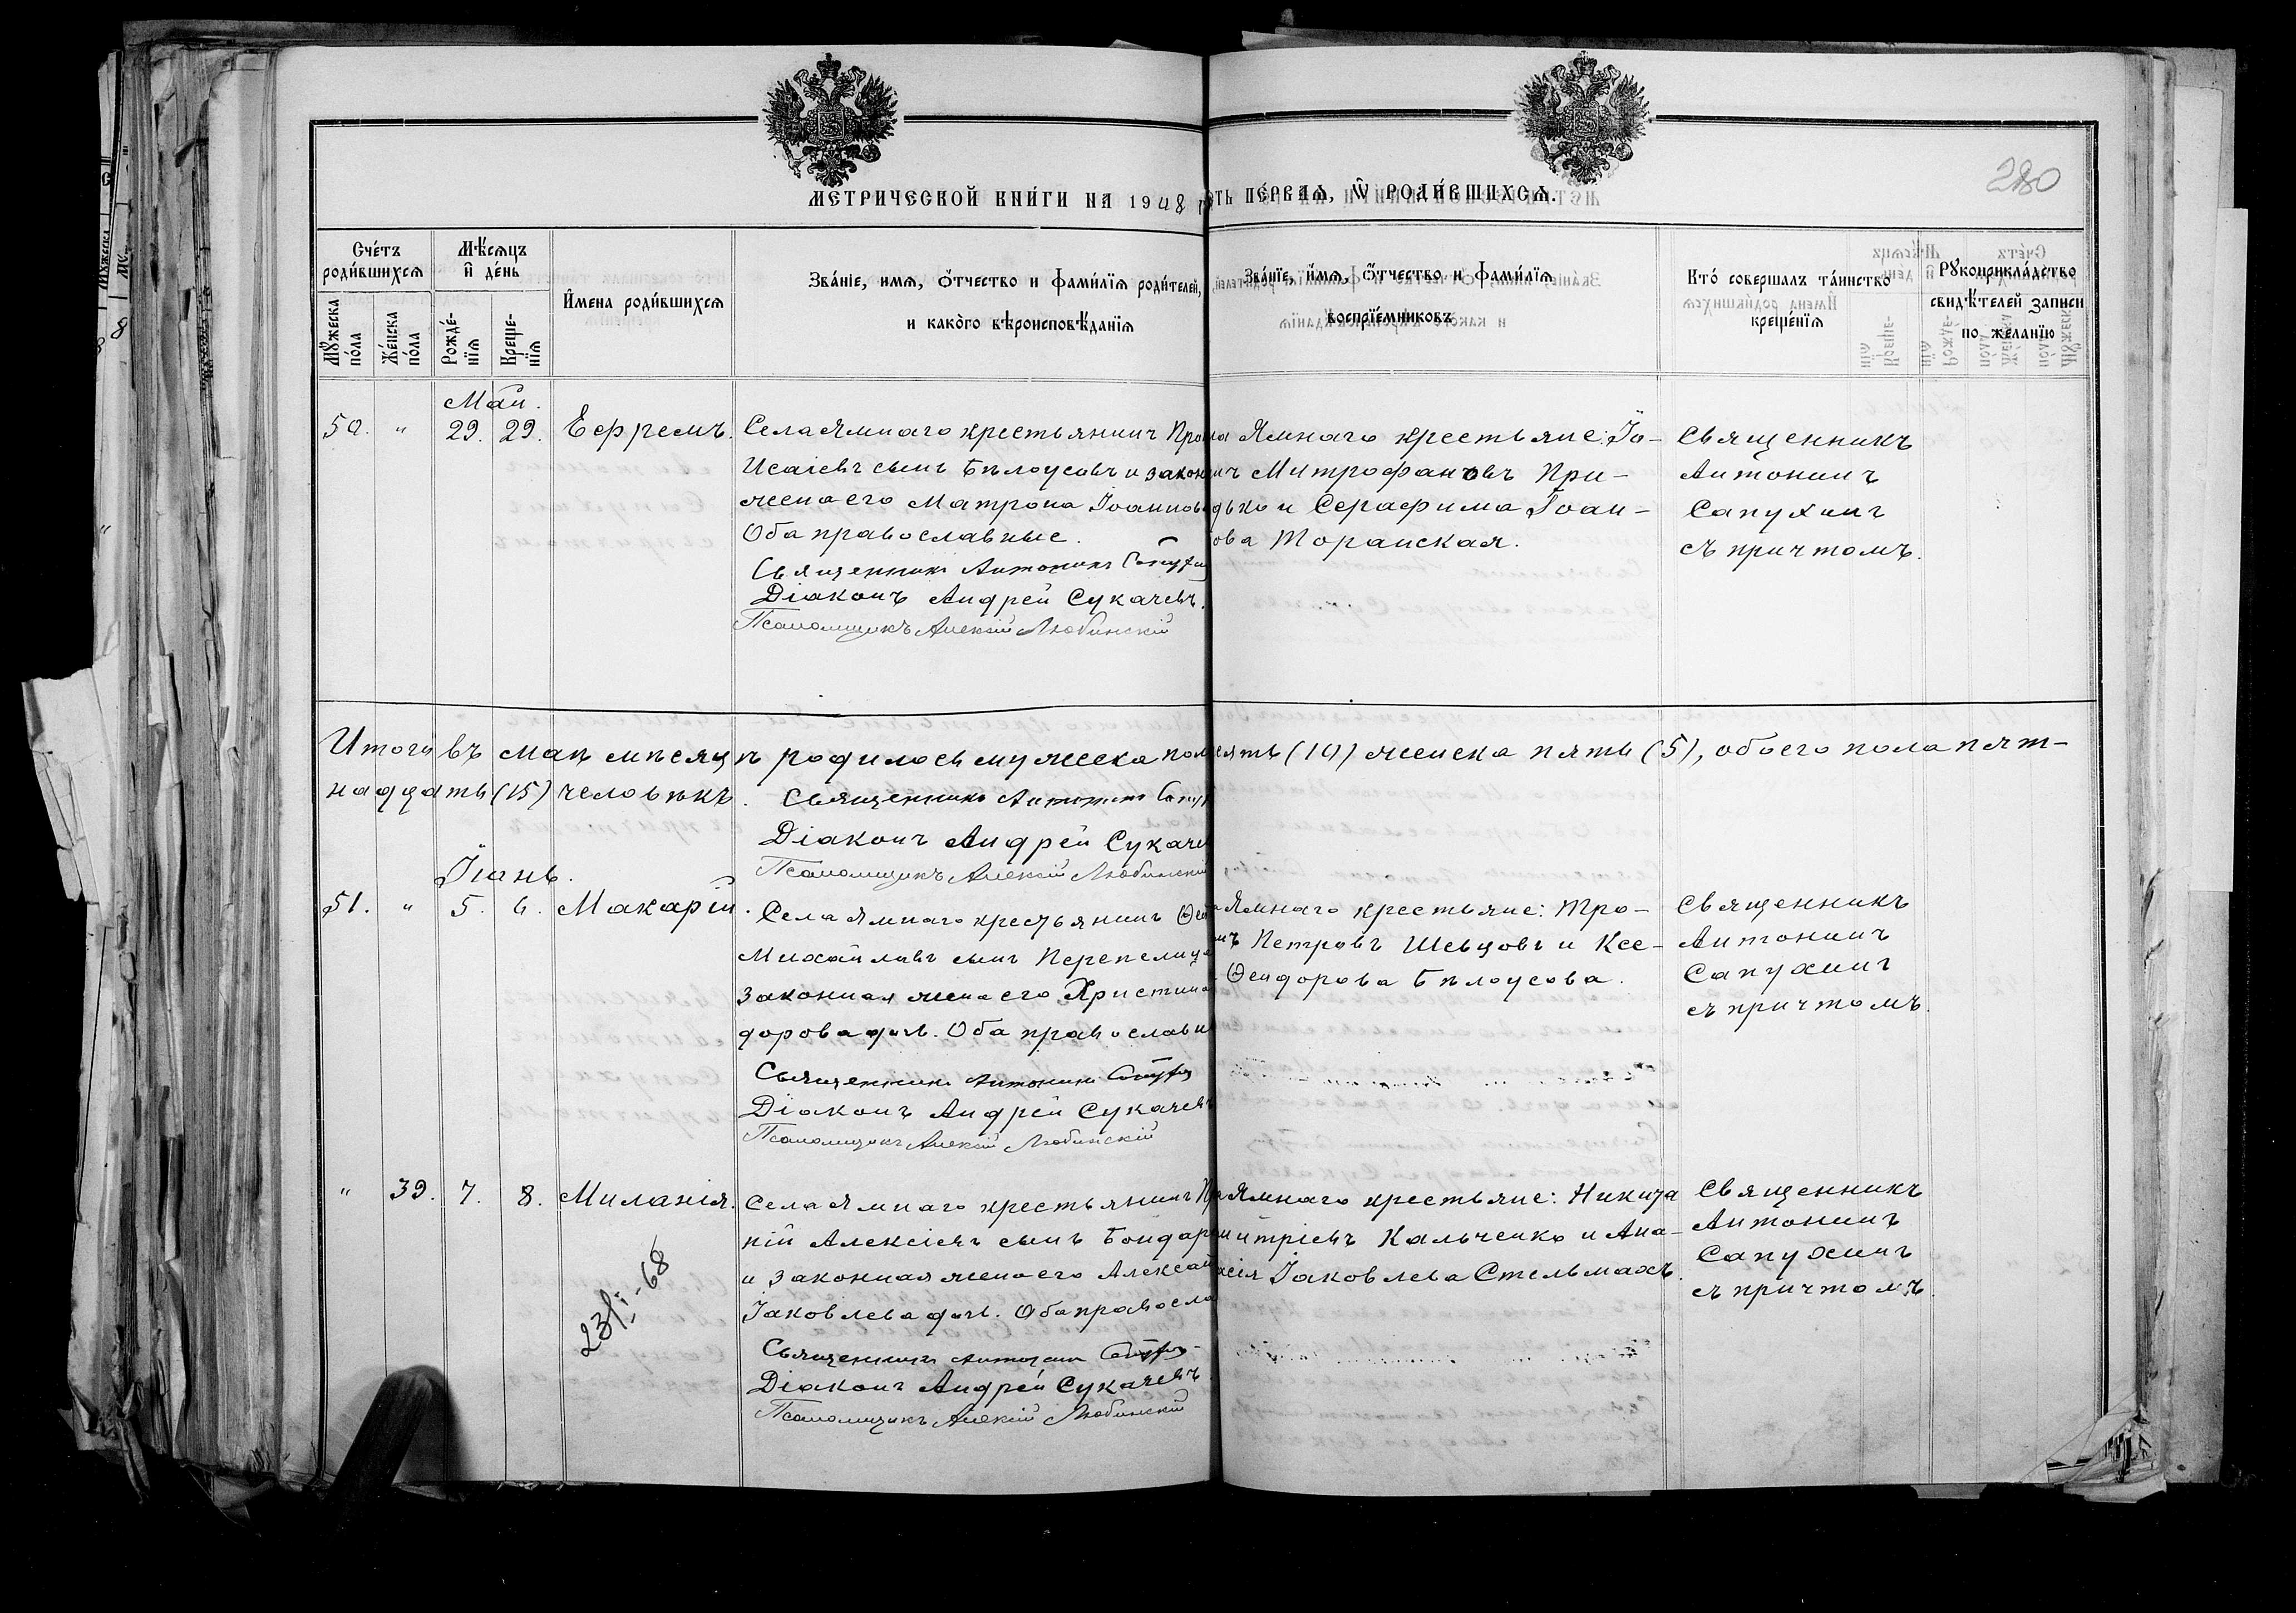 280
МЕТРИЧЕСКОЙ КНИГИ НА 1908
ПЕРВАЯ, Ѿ РОДИВШИХСЯ.
Счетъ родившихся
Мужеска пола
Женска пола
Мѣсяцъ и день
Рожденія
Крещенія
Имена родившихся
Званіе, имя, отчество и фамилія родителей,
и какого вѣроисповѣданія
Званіе, имя, отчество и фамилія
воспріемниковъ
Кто совершалъ таинство
крещенія
Рукоприкладство
свидѣтелей записи
по желанію
Май.
50. " 29. 29. Ефремъ.
Села Ямнаго крестьянинъ
Исаіевъ сынъ Бѣлоусовъ и
жена его Матрона
Оба православные.
Священникъ Антонинъ
Діаконъ Андрей Сукачевъ.
Псаломщикъ Алексій Любинскій
Ямнаго крестьяне: Іо-
Митрофановъ При-
и Серафима Іоан-
Торанская.
Священникъ
Антонинъ
Сапухинъ
съ причтомъ.
Итого въ маѣ мѣсяцѣ родилось мужеска (10) женска пять (5), обоего пола пят-
надцать (15) человѣкъ.
Священникъ Антонинъ
Діаконъ Андрей
Псаломщикъ Алексій Любинскій
Іюнь.
51. " 5. 6. Макарій.
Села Ямнаго крестьянинъ
Михайловъ сынъ Перепелица
законная жена его Христина
дорова дочь. Оба
Священникъ Антонинъ
Діаконъ Андрей Сукачевъ
Псаломщикъ Алексій Любинскій
Ямнаго крестьяне: Тро-
Петровъ Шевцовъ и Ксе-
Ѳеодорова Бѣлоусова.
Священникъ
Антонинъ
Сапухинъ
съ причтомъ.
" 39. 7. 8. Миланія.
Села Ямнаго крестьянинъ
Алексіевъ сынъ
и законная жена его
Іаковлева дочь.
Священникъ Антонинъ
Діаконъ Андрей Сукачевъ
Псаломщикъ Алексій Любинскій
Ямнаго крестьяне: Никита
Кальченко и Ана-
Іаковлева Стельмахъ.
Священникъ
Антонинъ
Сапухинъ
съ причтомъ.